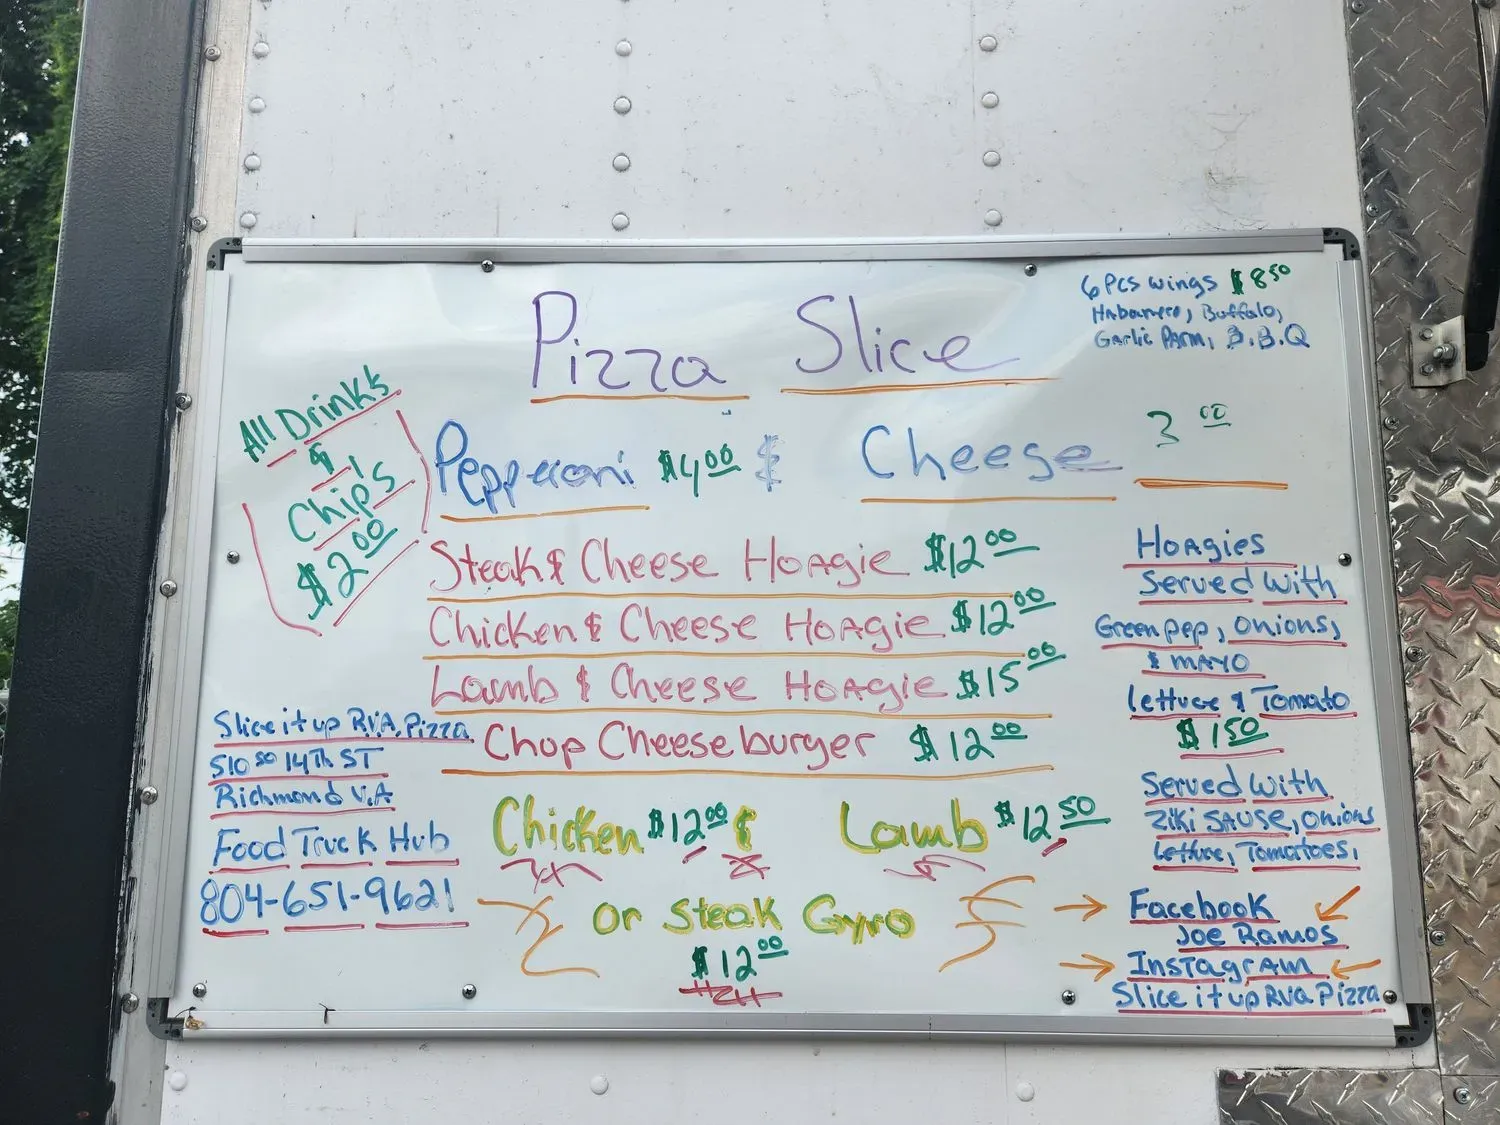 Pizza Slice
6 Pcs wings $8.50
Habanero, Buffalo,
Garlic Parm, B.B.Q
All Drinks
$1
Chips
$2.00
Pepperoni $4.00 $ Cheese 3.00
Steak & Cheese Hoagie $12.00
Chicken & Cheese Hoagie $12.00
Lamb & Cheese Hoagie $15.00
Chop Cheeseburger $12.00
Chicken $12.00 & Lamb $12.50
or Steak Gyro
$12.00
Hoagies
Served with
Green pep, onions,
& mayo
Lettuce & Tomato
$1.50
Served with
Ziki Sause, onions
Lettuce, Tomatoes,
Slice it up RVA Pizza
510 so 14th ST
Richmond V.A
Food Truck Hub
804-651-9621
Facebook
Joe Ramos
Instagram
Slice it up RVA Pizza